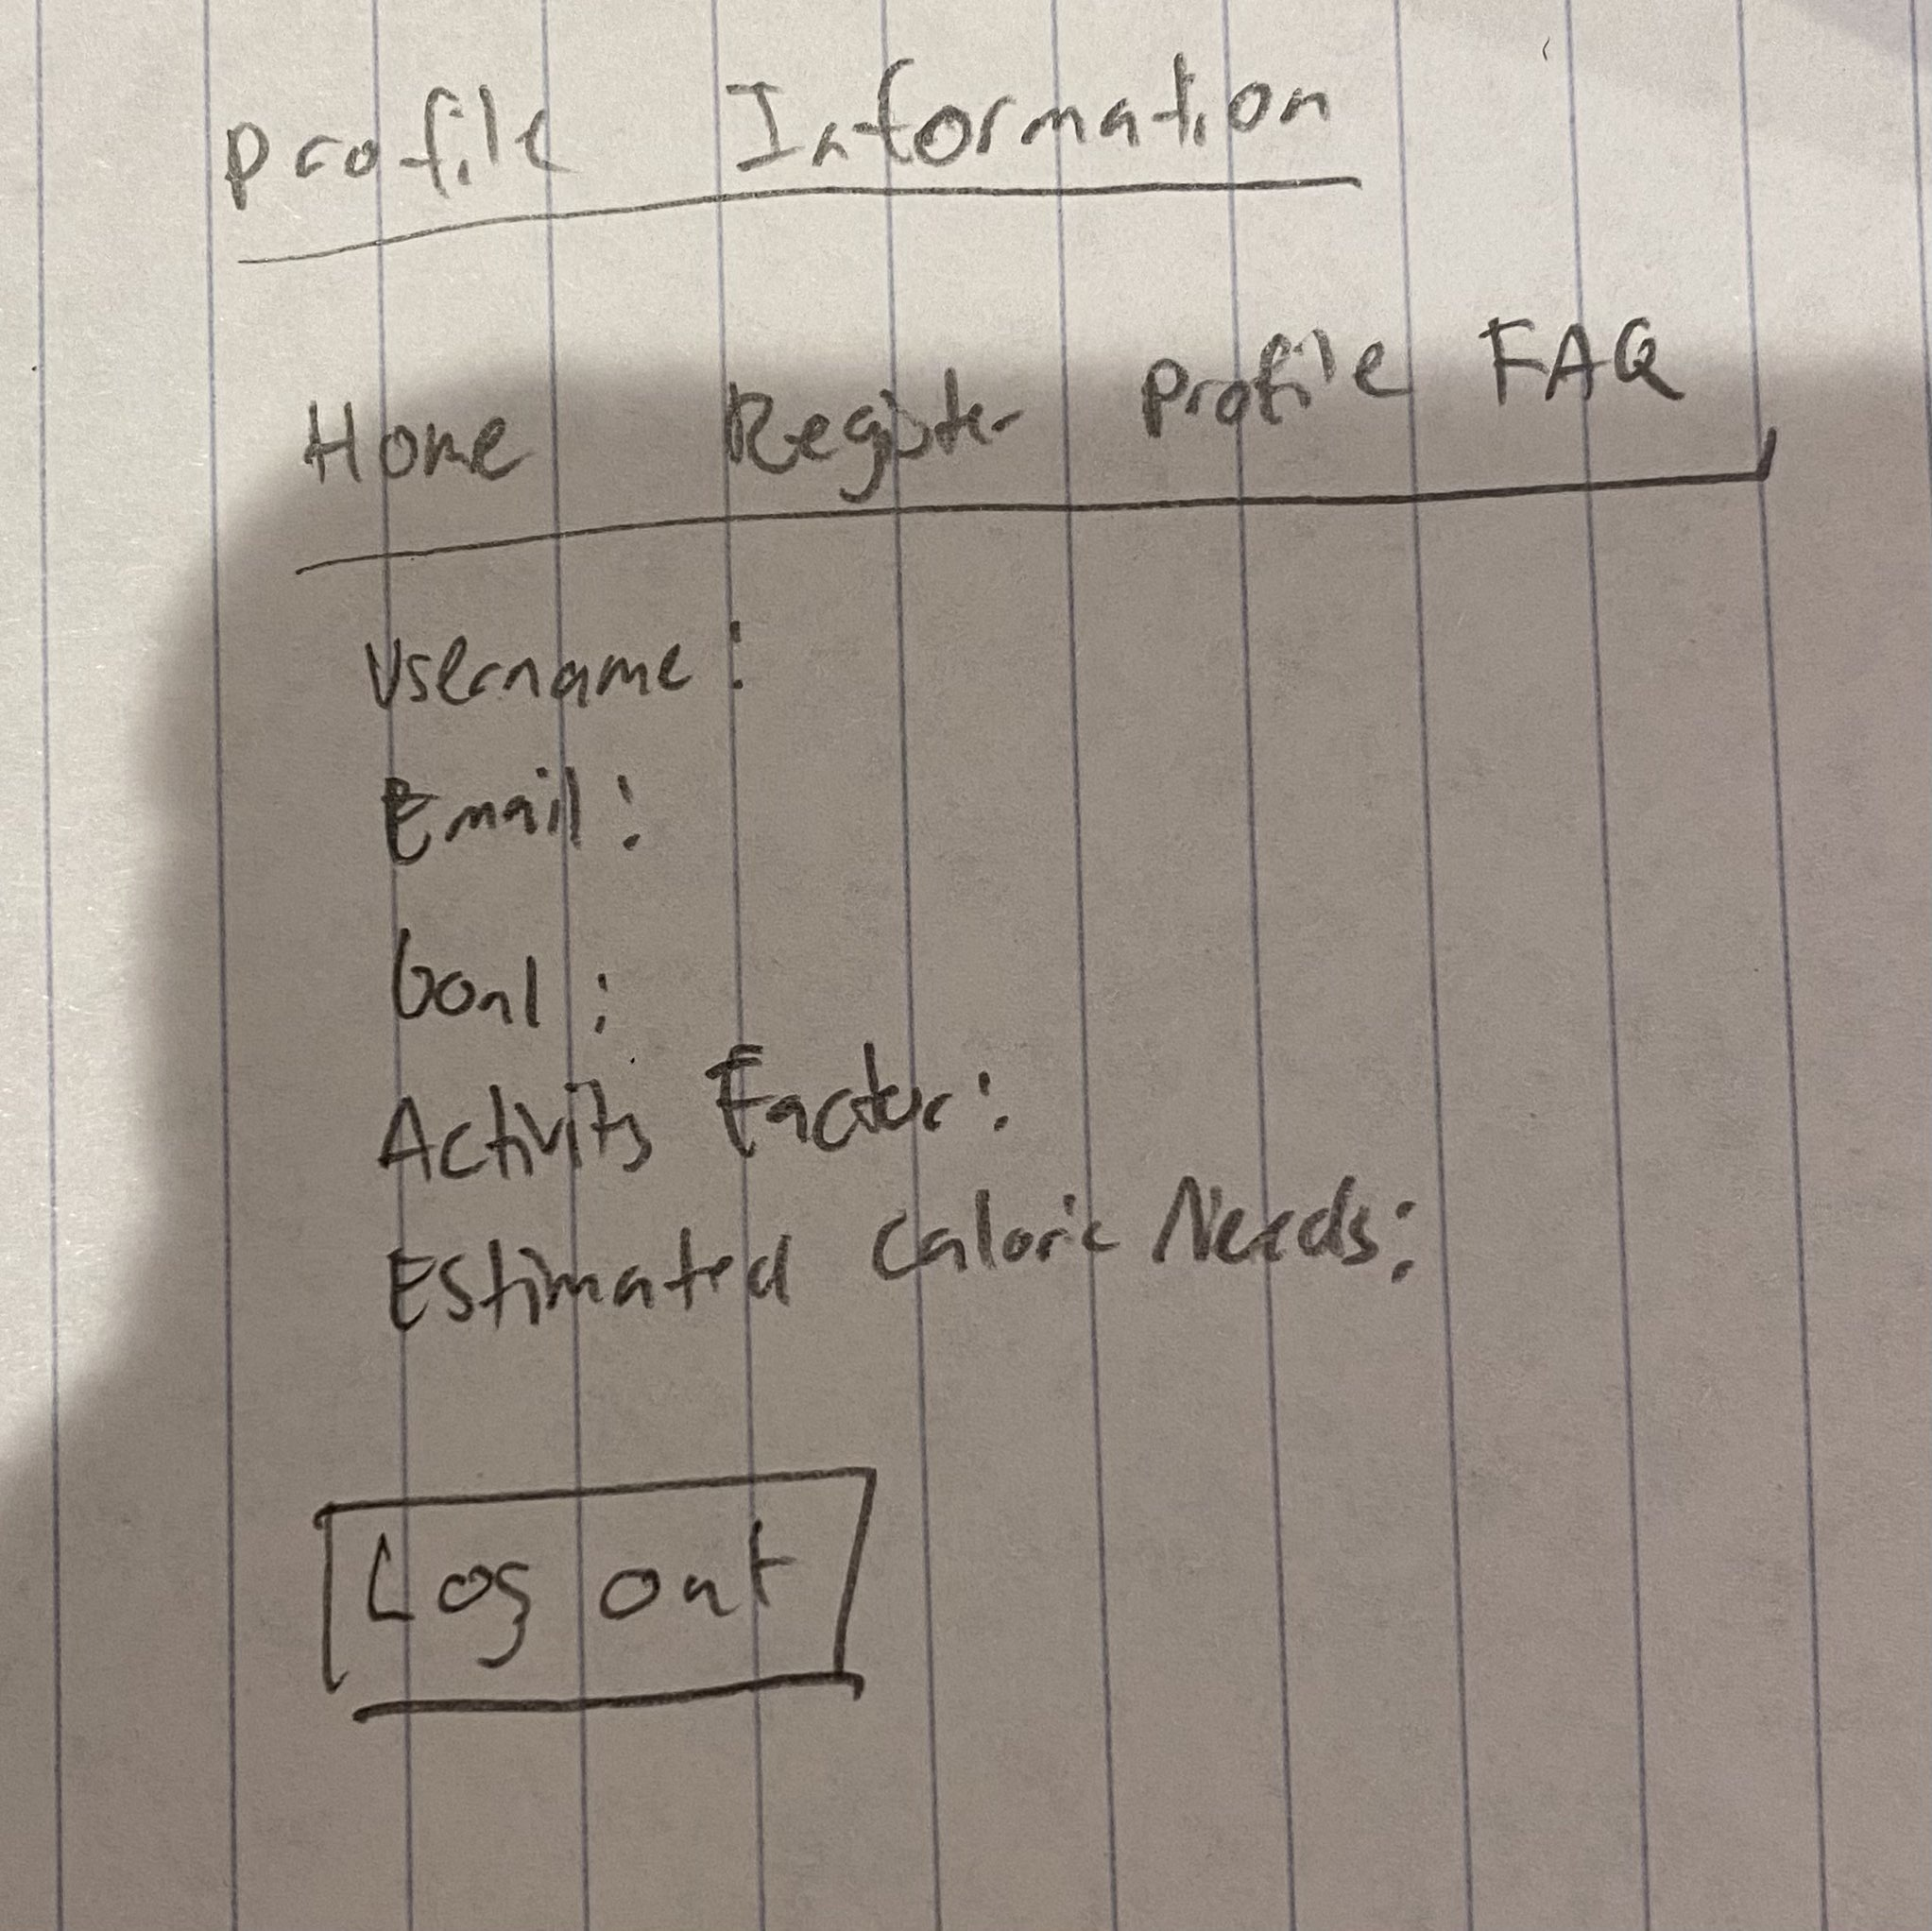 Profile Information
Home Register Profile FAQ
Username:
Email:
Goal:
Activity Factor:
Estimated Caloric Needs:
Log out